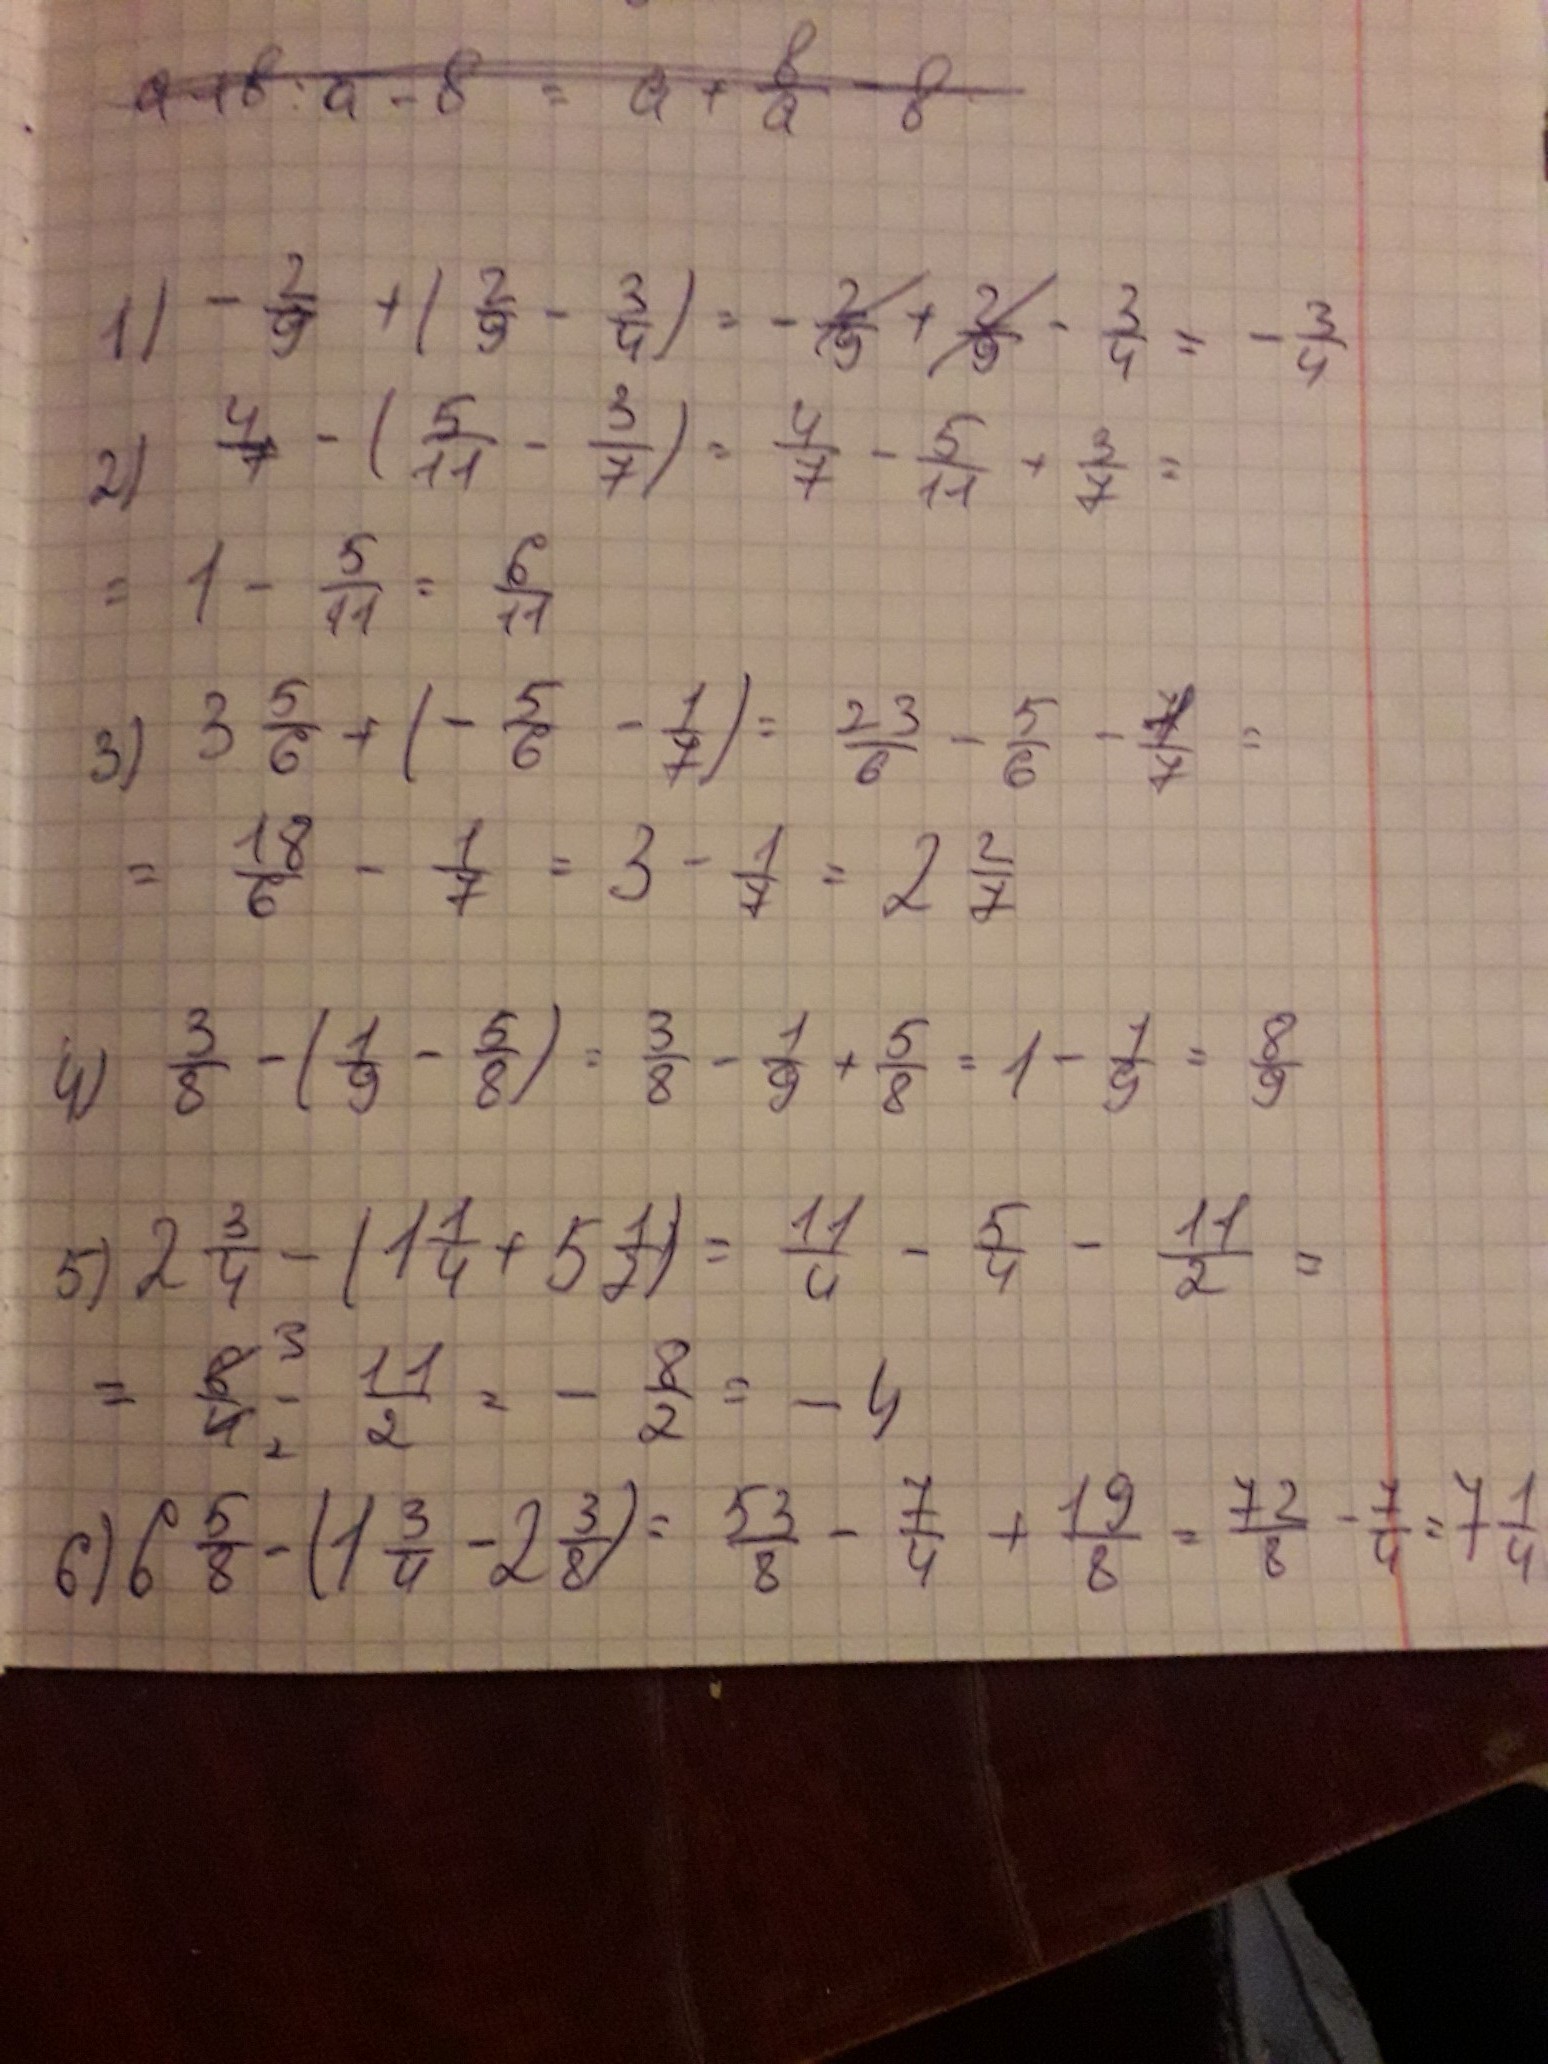 a + b : a - b = a + b/a - b
1) - 2/9 + ( 2/9 - 3/4 ) = - 2/9 + 2/9 - 3/4 = - 3/4
2) 4/7 - ( 5/11 - 3/7 ) = 4/7 - 5/11 + 3/7 =
= 1 - 5/11 = 6/11
3) 3 5/6 + ( - 5/6 - 1/7 ) = 23/6 - 5/6 - 1/7 =
= 18/6 - 1/7 = 3 - 1/7 = 2 2/7
4) 3/8 - ( 1/9 - 5/8 ) = 3/8 - 1/9 + 5/8 = 1 - 1/9 = 8/9
5) 2 3/4 - ( 1 1/4 + 5 1/2 ) = 11/4 - 5/4 - 11/2 =
= 6/4 3/2 - 11/2 = - 8/2 = - 4
6) 6 5/8 - ( 1 3/4 - 2 3/8 ) = 53/8 - 7/4 + 19/8 = 72/8 - 7/4 = 7 1/4